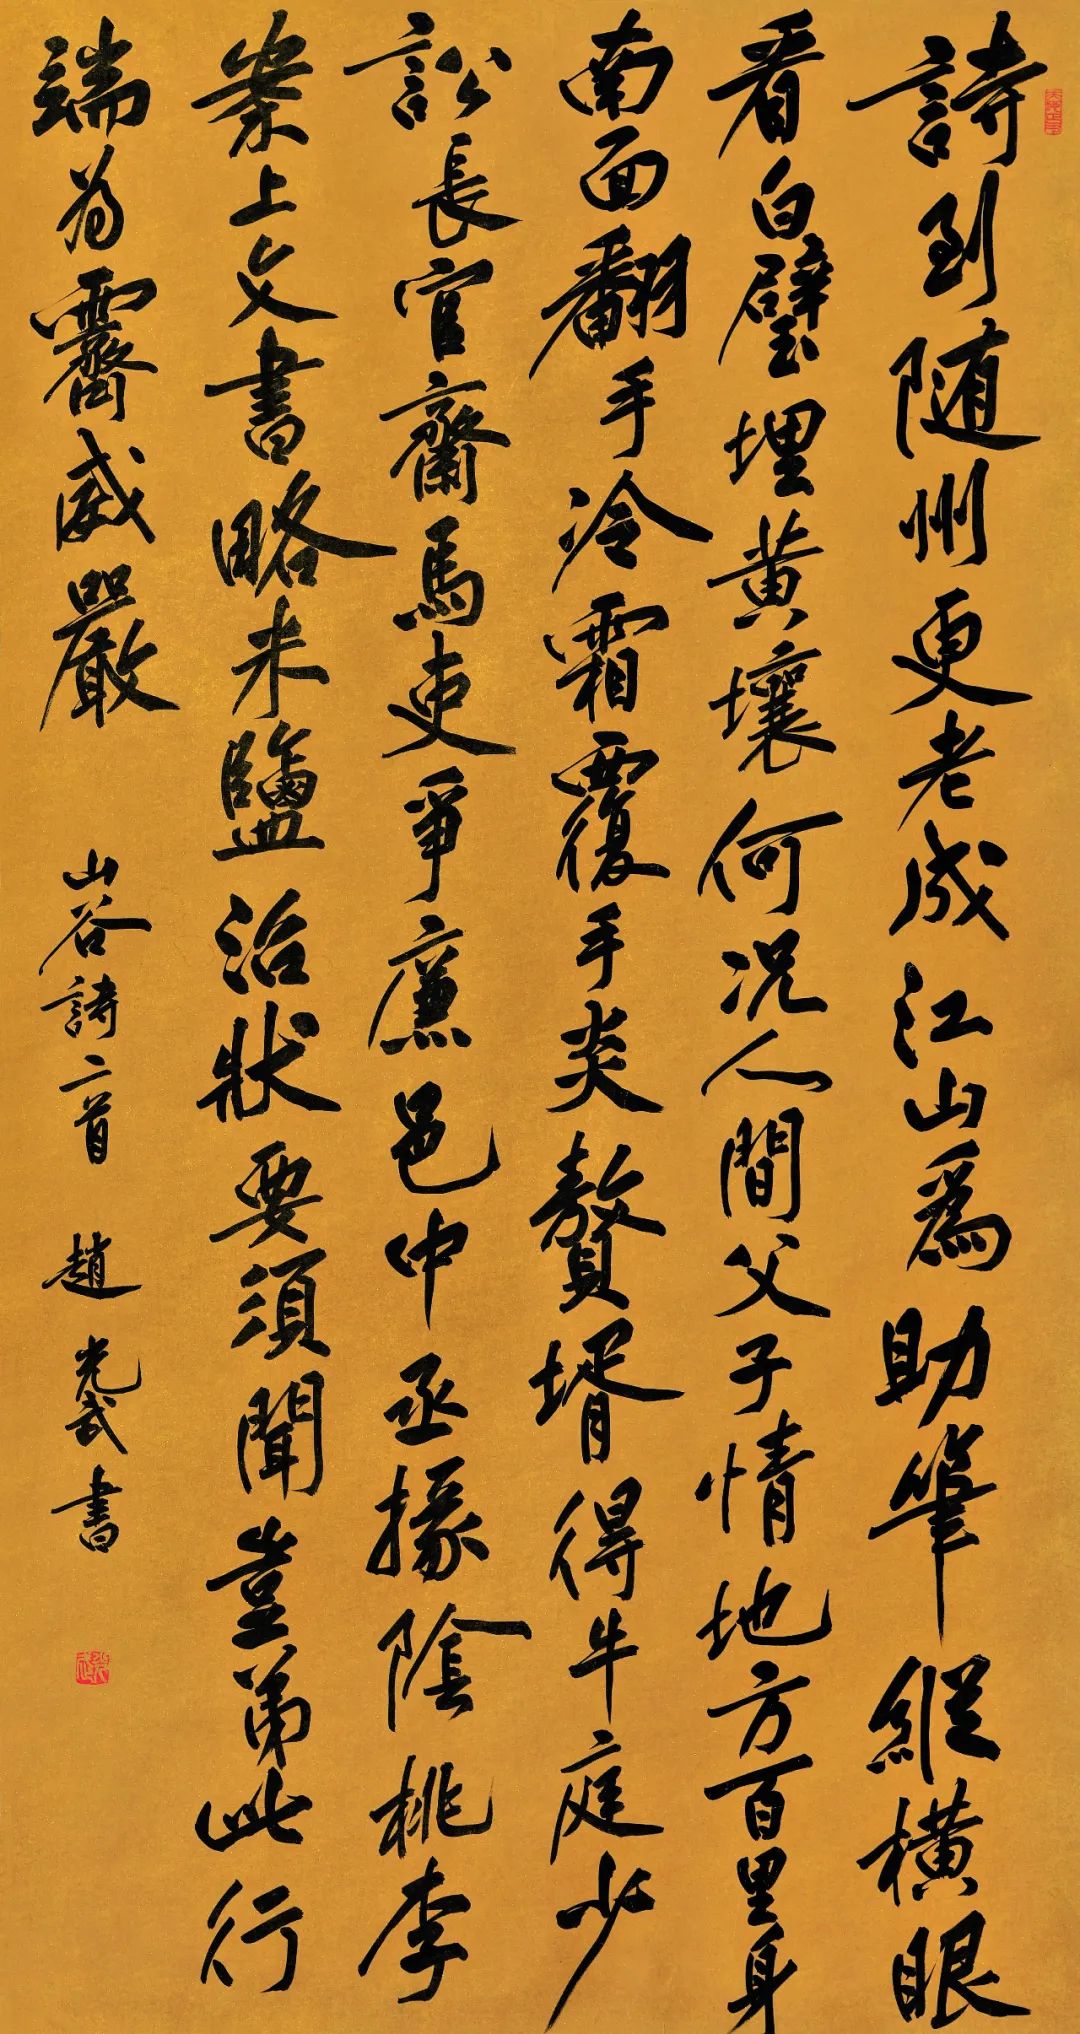 詩到随州更老成江山為助筆縱橫眼
看白璧埋黄壤何況人間父子情地方百里身
南面翻手冷霜覆手炎贅壻得牛庭少
訟長官齋馬吏爭廉邑中丞掾陰桃李
案上文書略米鹽治狀要須聞豈弟此行
端為霽威嚴
山谷詩二首 趙光武書